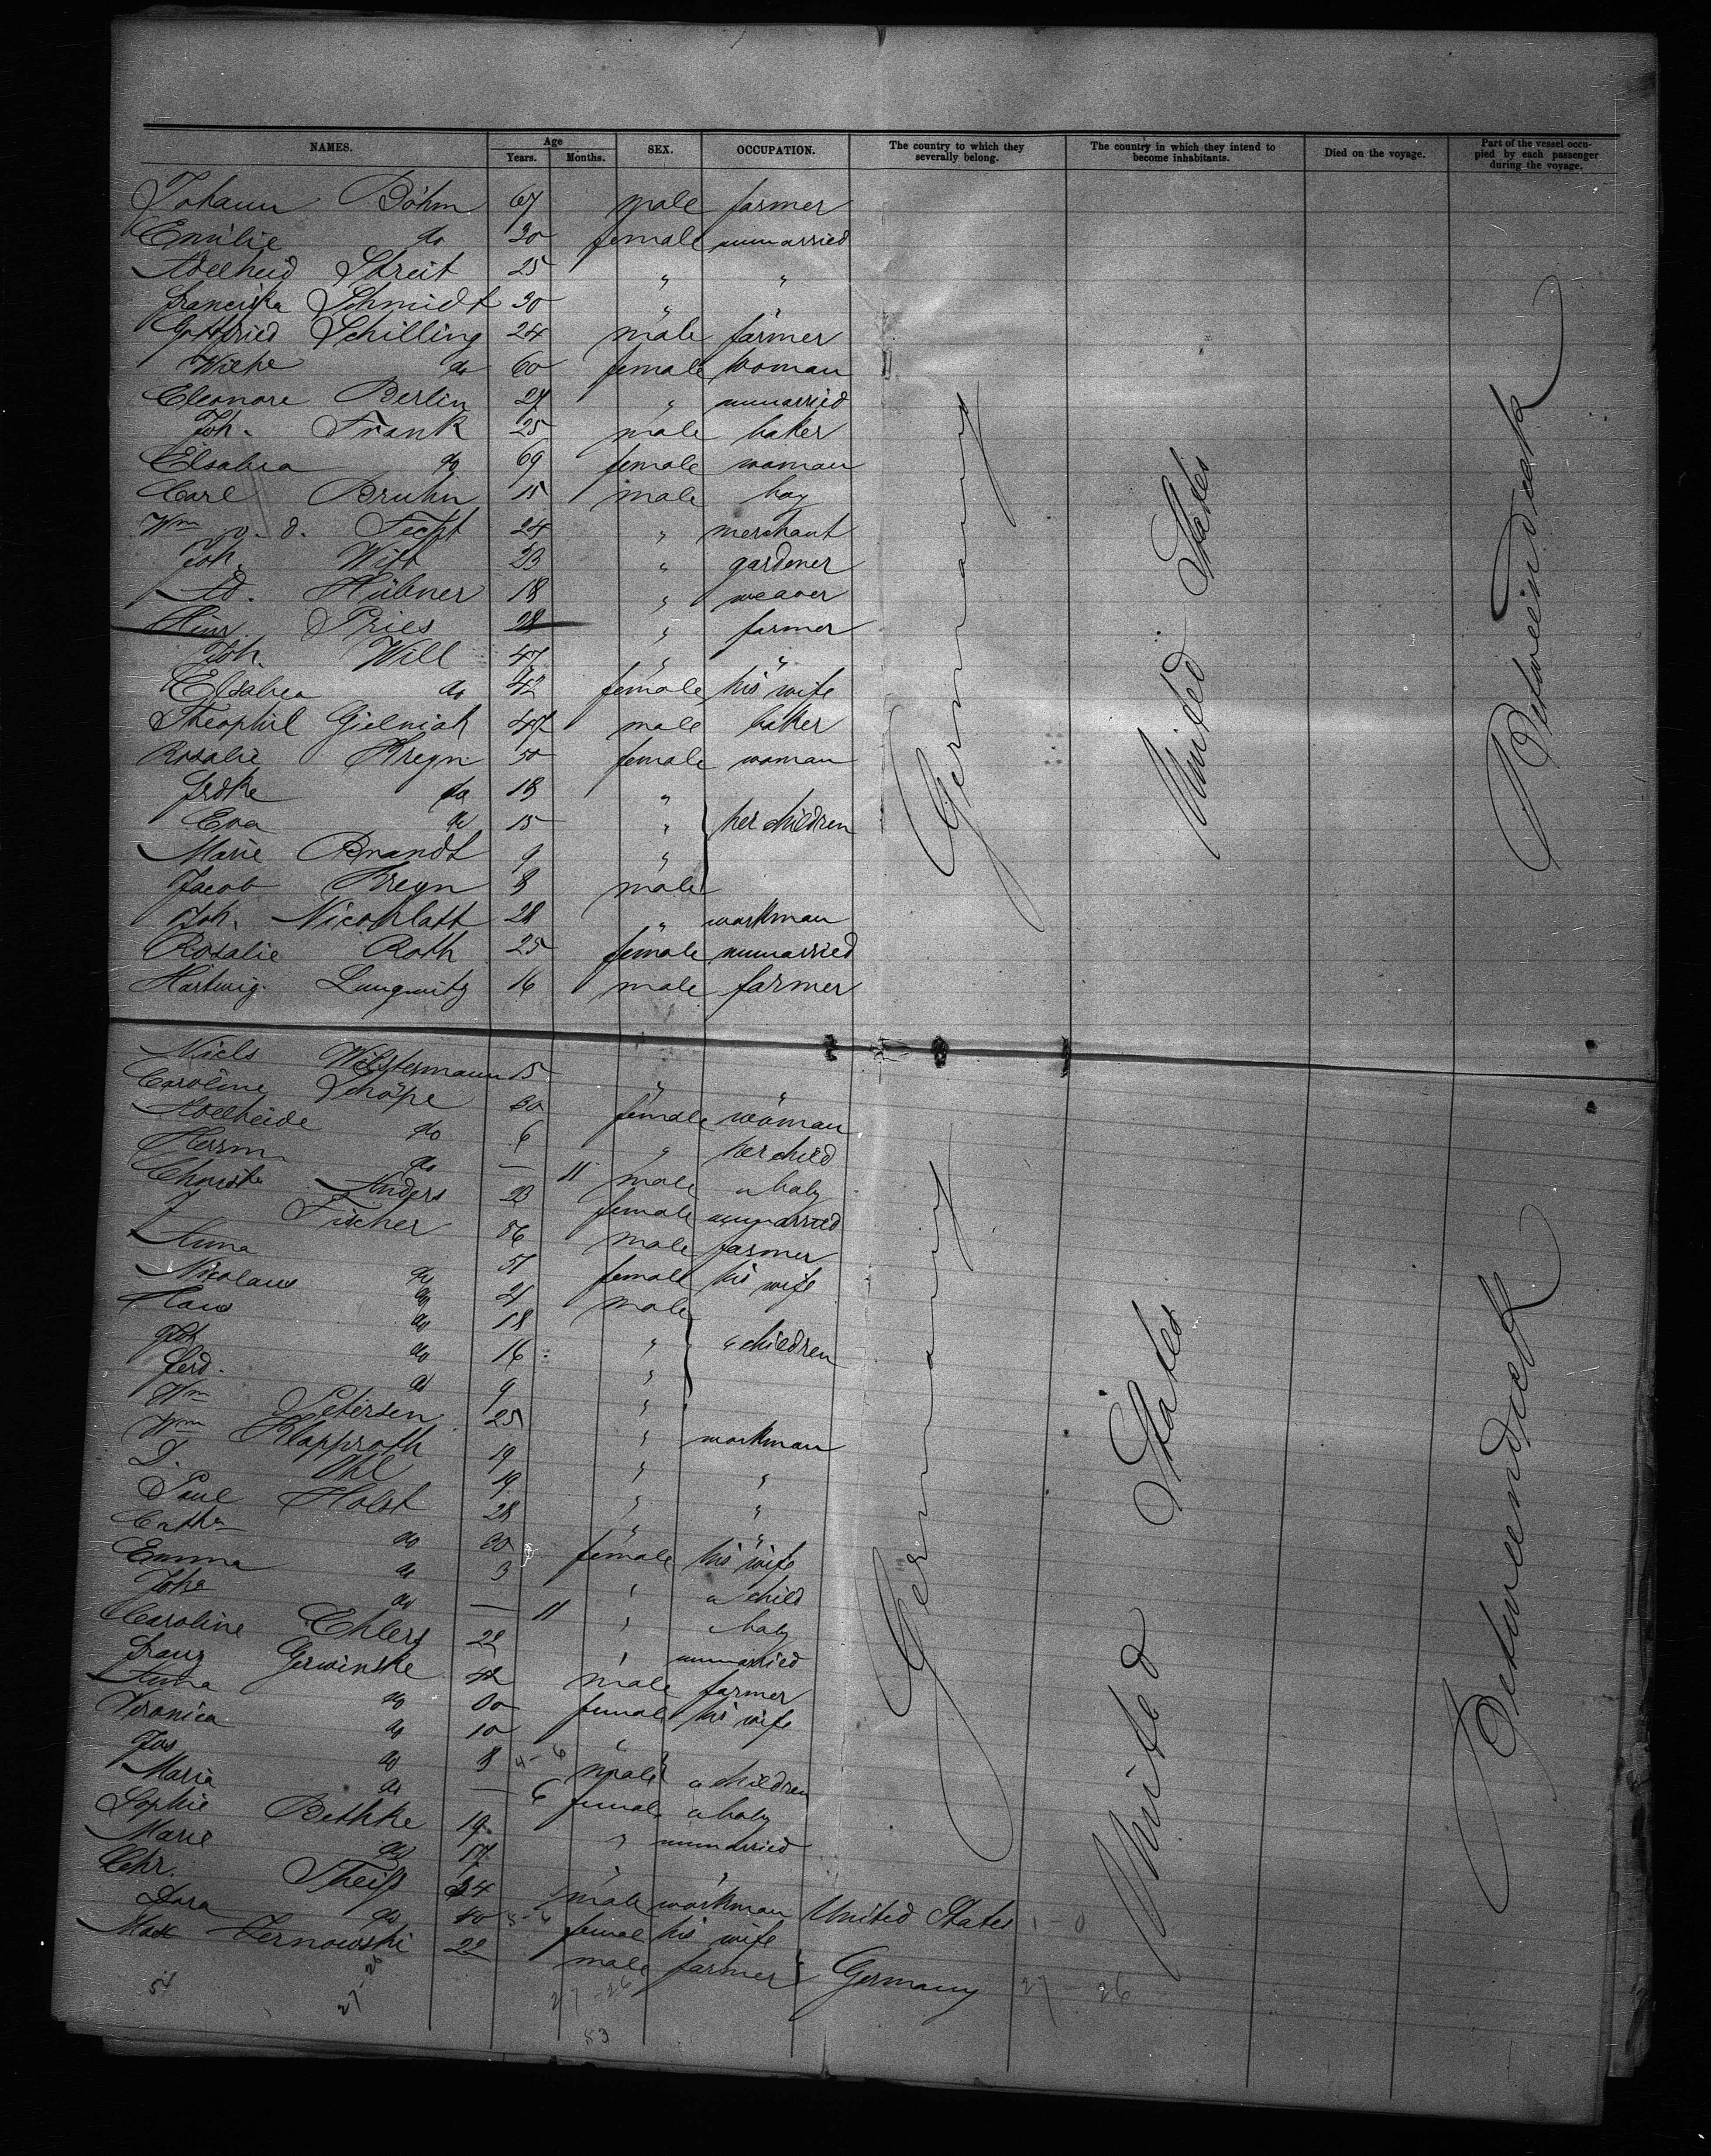 NAMES. Age Years. Months. SEX. OCCUPATION. The country to which they severally belong. The country in which they intend to become inhabitants. Died on the voyage. Part of the vessel occupied by each passenger during the voyage.
Johann Böhm 67 male farmer
Emilie do 30 female unmarried
Adelheid Streit 25 " "
Franciska Schmidt 30 " "
Gottfried Schilling 24 male farmer
Wilhe do 60 female woman
Eleonore Berlin 24 " unmarried
Joh. Frank 25 male baker
Elsabea do 69 female woman
Carl Bruhn 15 male boy
Wm v. d. Fecht 24 " merchant
Joh. Witt 23 " gardener
Ad. Hübner 18 " weaver
Hinr. Pries 28 " farmer
Joh. Will 47 " "
Elsabea do 42 female his wife
Theophil Gielniak 47 male baker
Rosalie Kregn 50 female woman
Frdke do 18 "
Eva do 15 " her children
Marie Brandt 9 "
Jacob Kregn 8 male
Joh. Nicoblatt 28 " workman
Rosalie Roth 25 female unmarried
Hartwig Lungwitz 16 male farmer
Germany United States Between deck
Niels Wilstermann 15 " "
Caroline Schöpe 30 female woman
Adelheide do 6 " her child
Herrm do — 11 male a baby
Christe Anders 23 female unmarried
J Fischer 56 male farmer
Anna do 51 female his wife
Nicolaus do 21 male
Claus do 18 " " children
Joh do 16 "
Ferd. do 9 "
Wm Petersen 25 " workman
Wm Klapproth 19 " "
D. Ohl 19 " "
Paul Holst 28 " "
Cathe do 30 female his wife
Emma do 3 " a child
Joha do — 11 " baby
Caroline Ehlers 22 " unmarried
Franz Gerwinske 42 male farmer
Anna do 30 female his wife
Veronica do 10 "
Jos do 8 male " children
Maria do — 6 female a baby
Sophie Bethke 19 " unmarried
Marie do 17 " "
Chr. Theiß 34 male workman United States
Dora do 40 female his wife
Max Zernowski 22 male farmer Germany
Germany United States Betweendeck
54 27-26 27-26 27-26
53